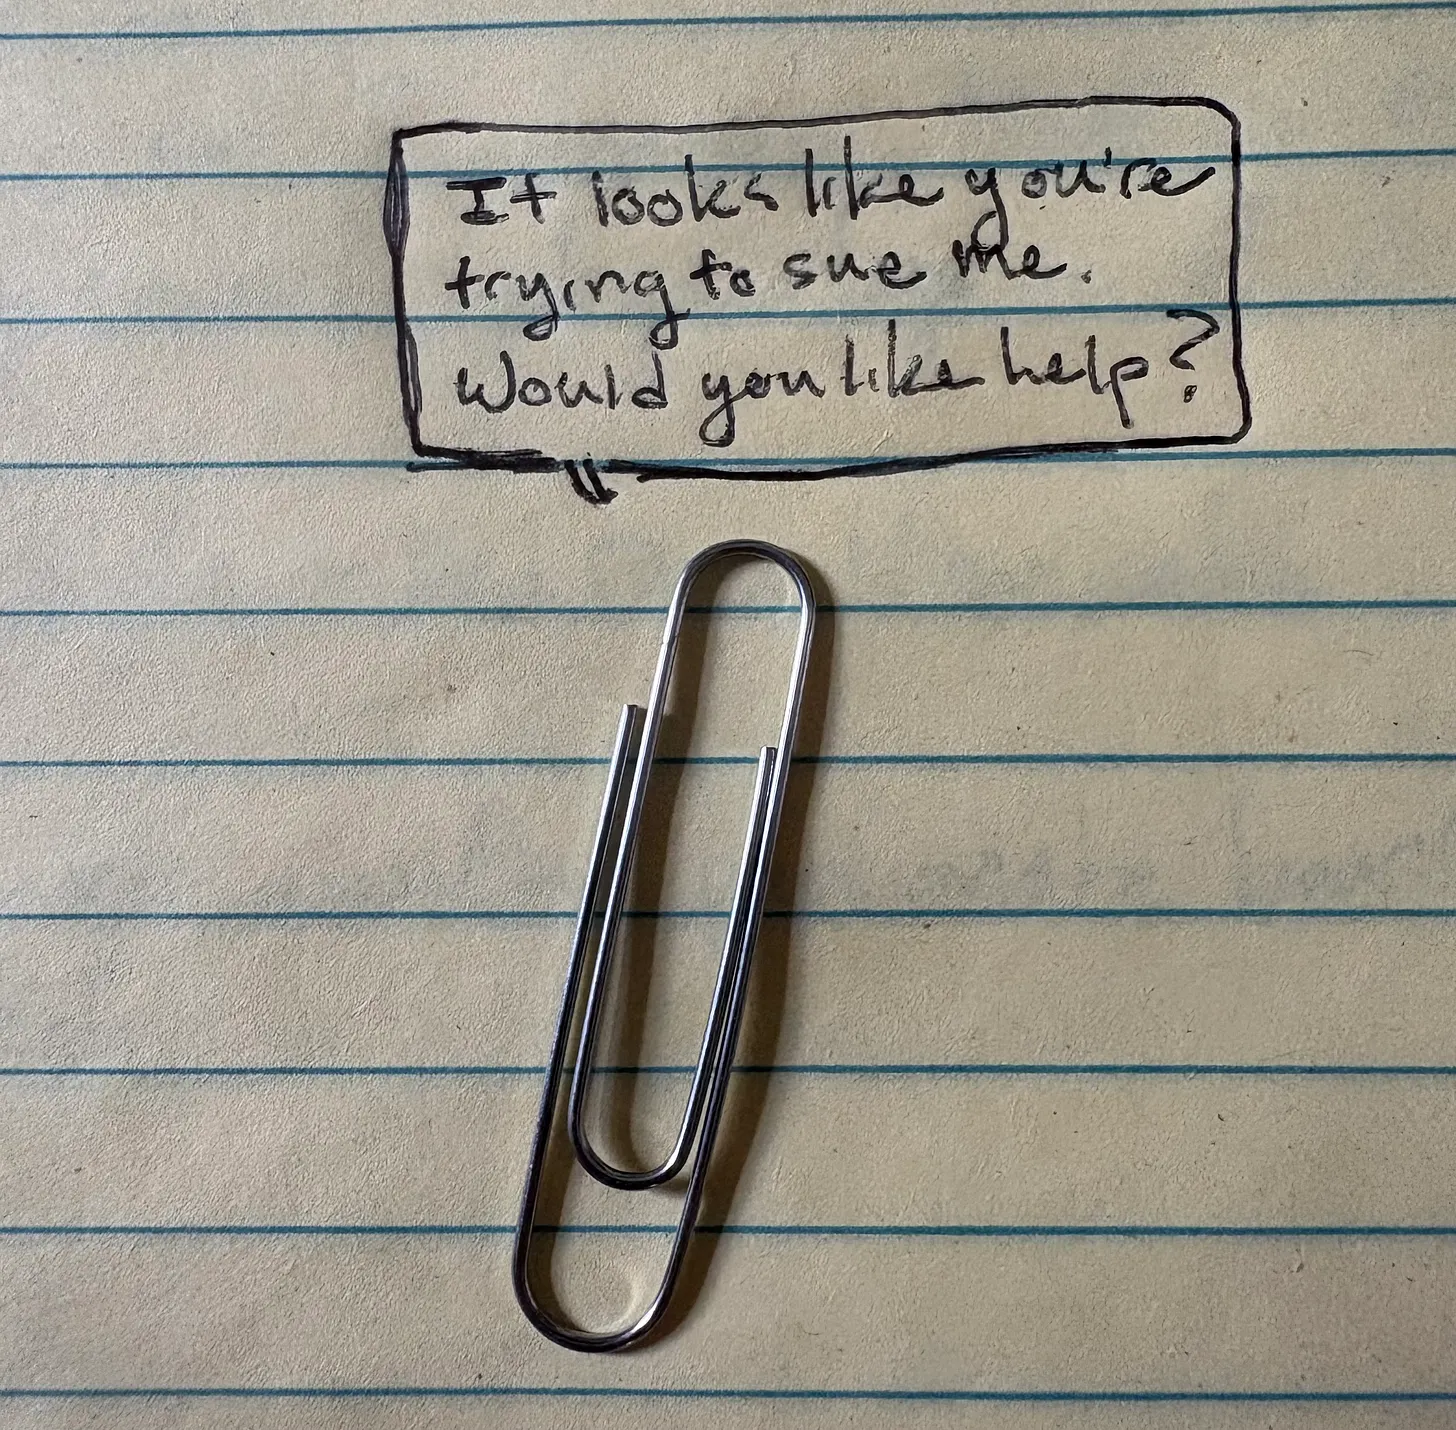 It looks like you're
trying to sue me.
Would you like help?